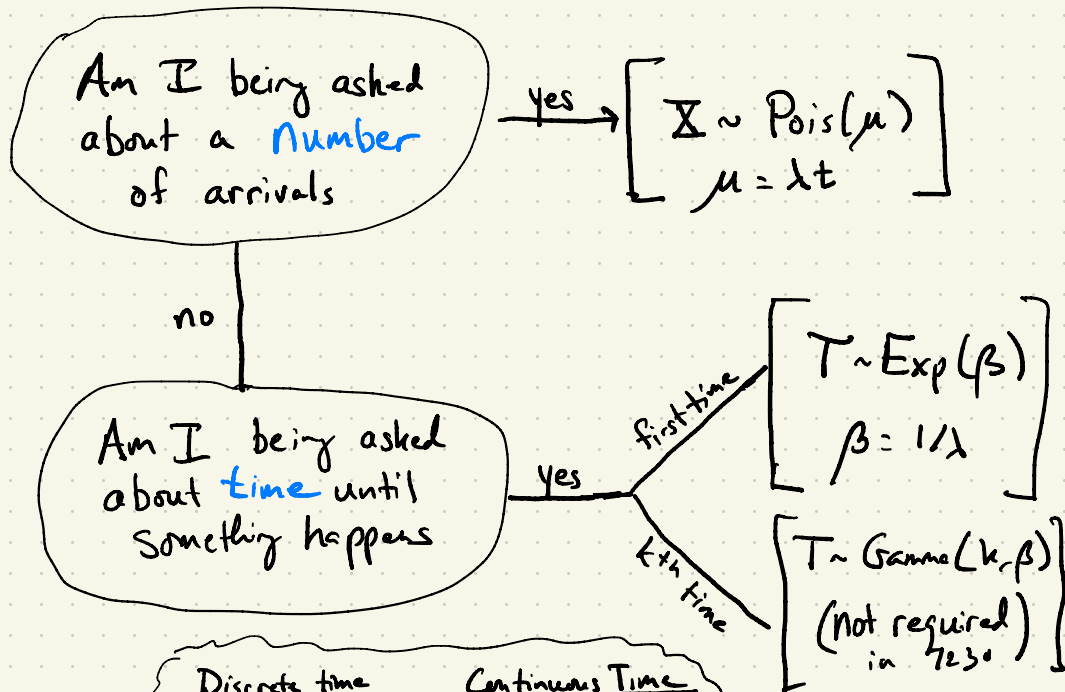 Am I being asked
about a number
of arrivals
yes
X ~ Pois(μ)
μ = λt
no
Am I being asked
about time until
something happens
yes
first time
T ~ Exp(β)
β = 1/λ
kth time
T ~ Gamma(k, β)
(not required
in 7230)
Discrete time
Continuous Time